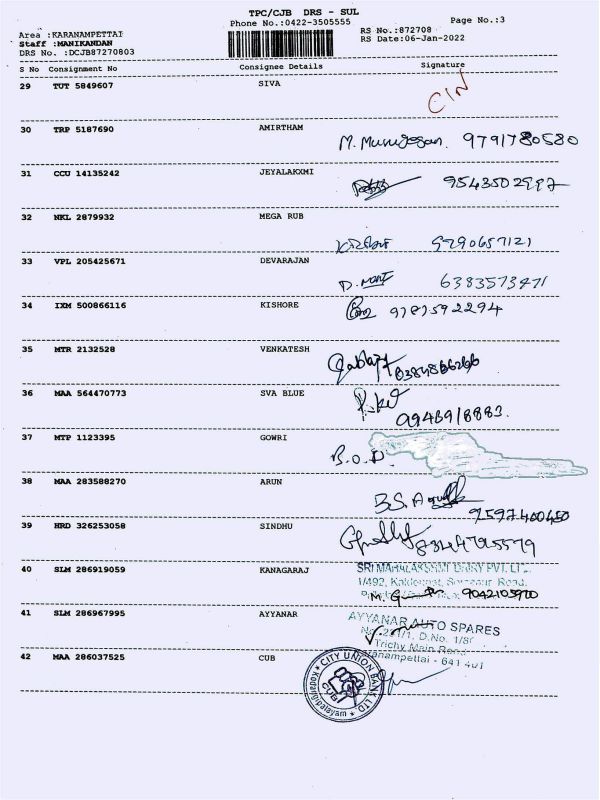 TPC/CJB DRS - SUL
Phone No.:0422-3505555
Page No.:3
Area :KARANAMPETTAI
Staff :MANIKANDAN
DRS No. :DCJB87270803
RS No.:872708
RS Date:06-Jan-2022
S No Consignment No Consignee Details Signature
29 TUT 5849607 SIVA CIN
30 TRP 5187690 AMIRTHAM M. Murugesan. 9791780580
31 CCU 14135242 JEYALAKXMI
32 NKL 2879932 MEGA RUB
33 VPL 205425671 DEVARAJAN D. 6383573471
34 IXM 500866116 KISHORE
35 MTR 2132528 VENKATESH
36 MAA 564470773 SVA BLUE
37 MTP 1123395 GOWRI B.O.D
38 MAA 283588270 ARUN B.S. 9597400450
39 HRD 326253058 SINDHU
40 SLM 286919059 KANAGARAJ SRI MAHALAKSHMI PVT. LTD.
1/492, Road,
M. 9042105900
41 SLM 286967995 AYYANAR AYYANAR AUTO SPARES
D.No. 1/80
Trichy Main Road
Karanampettai - 641 401
42 MAA 286037525 CUB CITY UNION BANK LTD.
CUB
Kodangipalayam